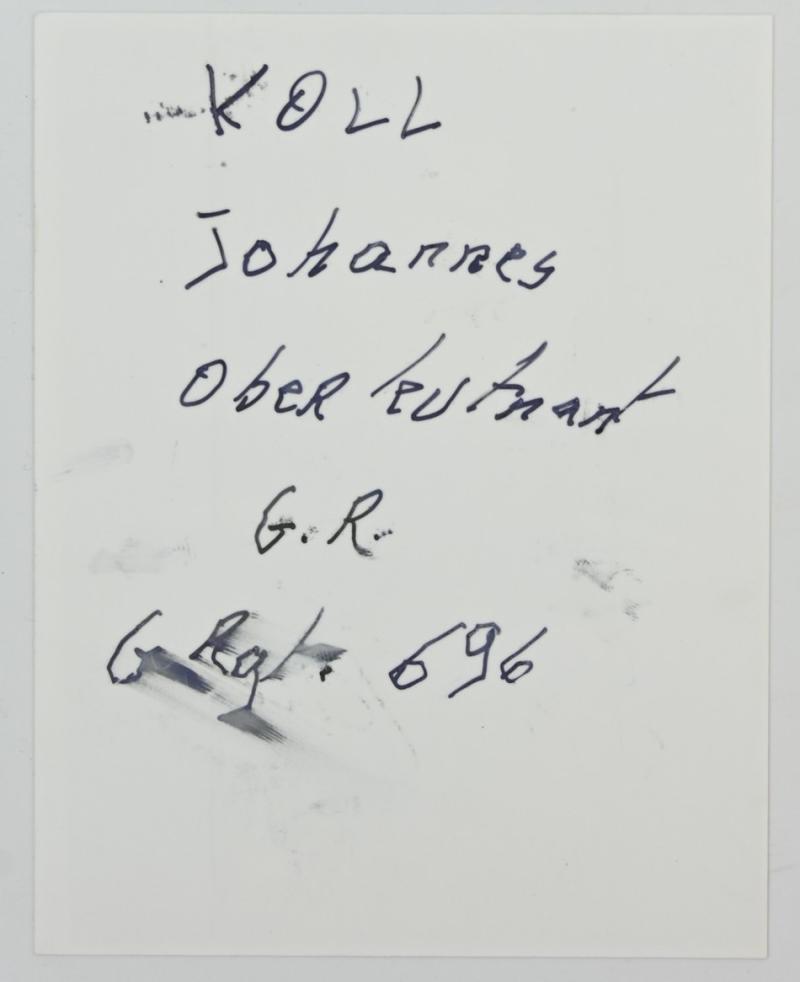 KOLL
Johannes
Oberleutnant
G.R.
G Rgt. 696